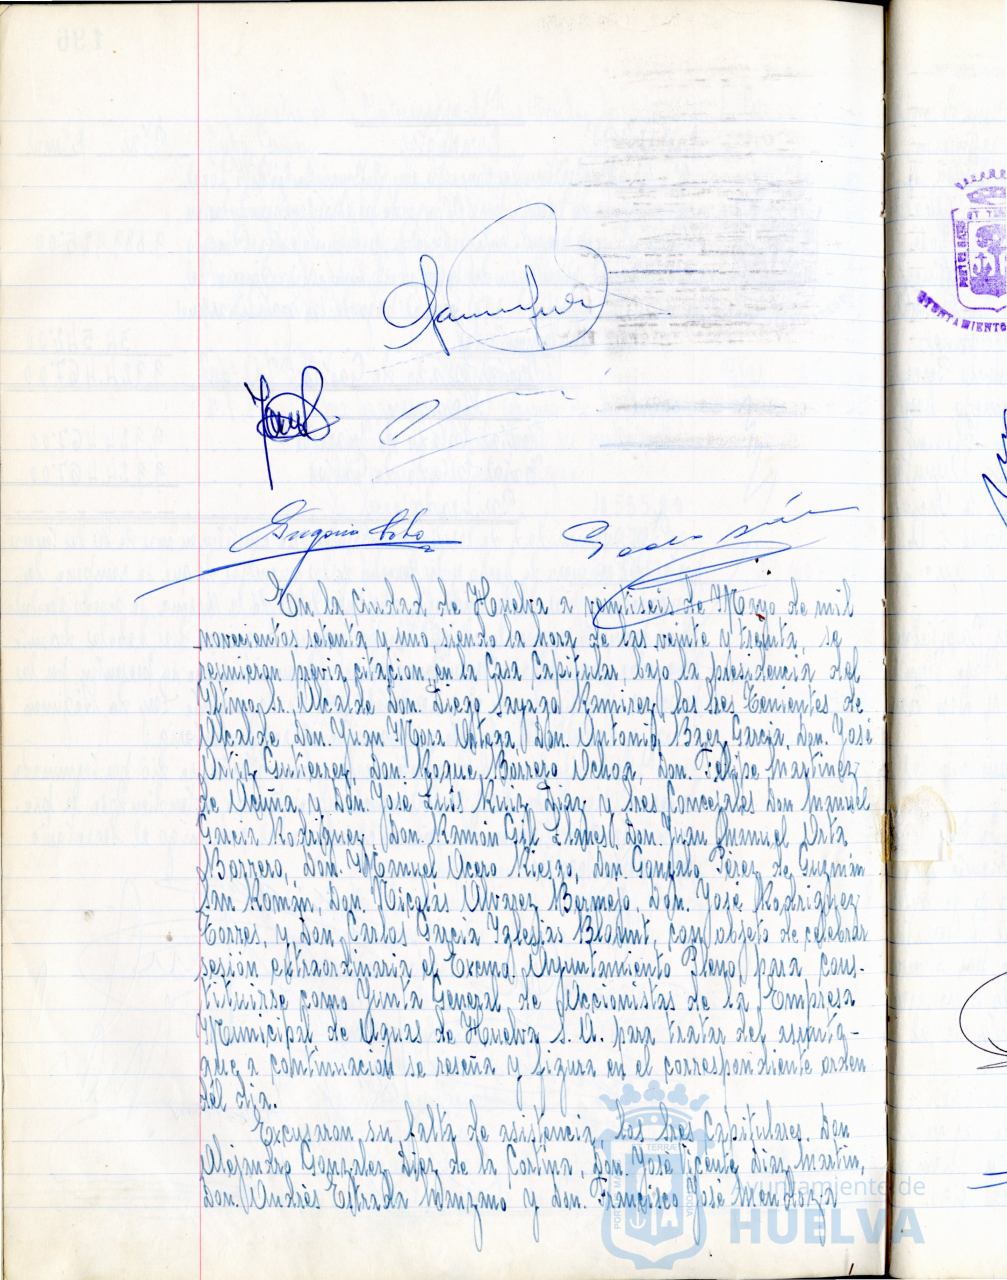 Eugenio
En la ciudad de Huelva a veintiseis de Mayo de mil
novecientos setenta y uno, siendo la hora de las veinte y treinta, se
reunieron previa citacion, en la Casa Capitular, bajo la presidencia del
Iltmo. Sr. Alcalde Don. Diego Ramirez, los Sres Tenientes de
Alcalde, Don. Juan Mora Ortega, Don. Antonio Baez Garcia, Don. José
Ortiz Gutierrez, Don. Roque Barrero Ochoa, Don. Felipe Martinez
de Acuña y Don José Luis Ruiz Diaz y Sres Concejales Don Manuel
Garcia Rodriguez, Don. Ramón Gil Don. Juan Manuel Orta
Borrero, Don. Manuel Acero Riesgo, Don. Gonzalo Pérez de Guzmán
San Román, Don. Nicolás Alvarez Bermejo, Don. José Rodriguez
Torres, y Don Carlos Garcia Iglesias con objeto de celebrar
sesión extraordinaria el Excmo. Ayuntamiento Pleno para cons-
tituirse como Junta General de Accionistas de la Empresa
Municipal de Aguas de Huelva S.A. para tratar del asunto-
que a continuación se reseña y figura en el correspondiente orden
del dia.
Excusaron su falta de asistencia los Sres Capitulares. Don
Alejandro Gonzalez Diez de la Cortina, Don. José Vicente Diaz Martin,
Don. Andrés Estrada Manzano y Don. Francisco José Mendoza
Ayuntamiento de
HUELVA